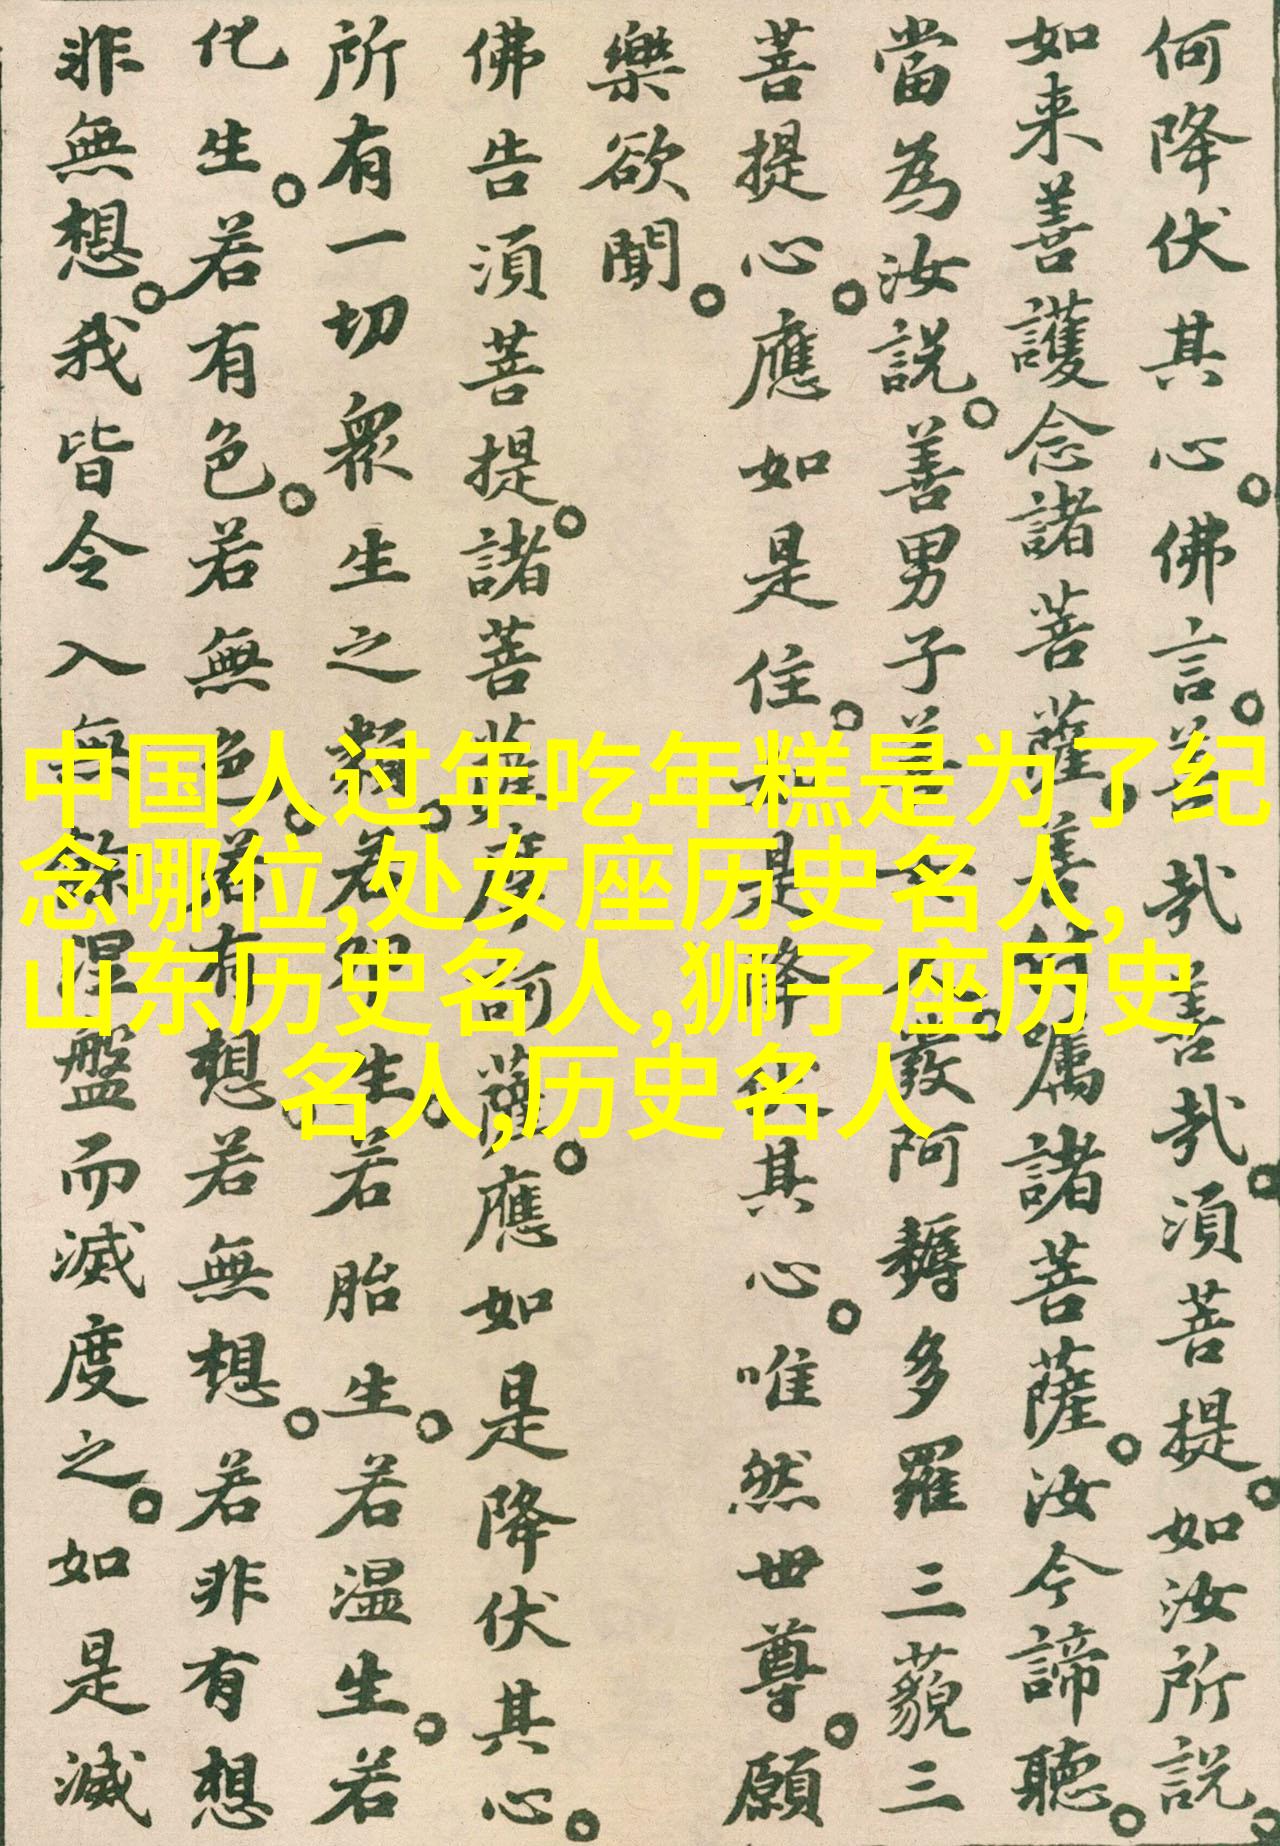 何降伏其心。佛言。善哉善哉。須菩提。如汝所說。
如来善護念諸菩薩。善付囑諸菩薩。汝今諦聽。
當為汝説。善男子善女人。發阿耨多羅三藐三
菩提心。應如是住。如是降伏其心。唯然世尊。願
樂欲聞。
佛告須菩提。諸菩薩摩訶薩。應如是降伏其心。
所有一切衆生之類。若卵生。若胎生。若温生。若
化生。若有色。若無色。若有想。若無想。若非有想
非無想。我皆令入無餘涅盤而滅度之。如是滅
中国人过年吃年糕是为了纪
念哪位,处女座历史名人,
山东历史名人,狮子座历史
名人,历史名人